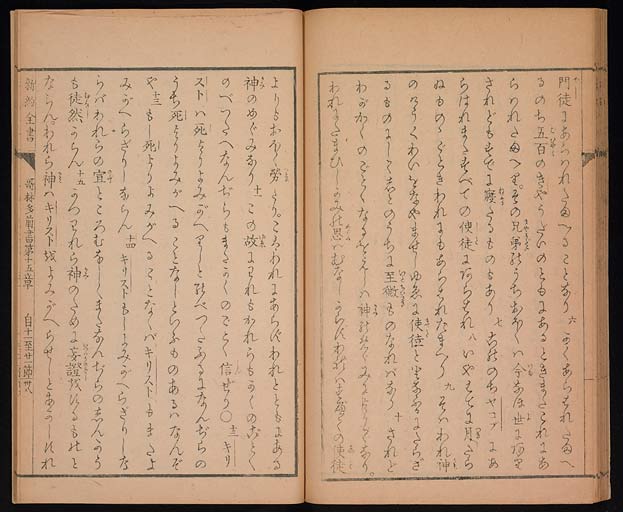 門徒にあらはれたまへることなり 六 かくあらはれたまへ
るのち五百のきやうだいのともにあるときまたこれにあ
らはれたまへり。その兄弟のうちおほくハ今なほ世にあり
されどもすでに寝たるものもあり 七 そののちヤコブにあ
らはれまたすべての使徒にあらはれ 八 いやはてに月たら
ぬものゝごときわれにもあらはれたまへり 九 それわれ神
のけうくわいをなやませしゆゑに使徒となふるにたらざ
るものにして志とのうちに至微ものなればなり 十 されど
わがかくのごとくなるをえしハ神のめぐみによりてなり。
われにたまひし恩ハむなしからずわれハすべての使徒
よりもおほく勞たり。こハわれにあらずわれとともにある
神のめぐみなり 十一 この故にわれもかれらもかくのごとく
のべつたへなんぢらもまたかくのごとく信ぜり〇 十二 キリ
ストハ死よりよみがへりしとのべつたふるになんぢらの
うち死よりよみがへることなしといふものあるハなんぞ
や 十三 もし死よりよみがへることなくバキリストもまたよ
みがへらざりしならん 十四 キリストもしよみがへらざりしな
らバわれらの宣ところむなしくまたなんぢらのしんかう
も徒然からん 十五 かつわれら神のために妄證
ならんわれら神ハキリストをよみがへらせしと
新約全書 哥林多前書第十五章 自十一至廿一節 卅八